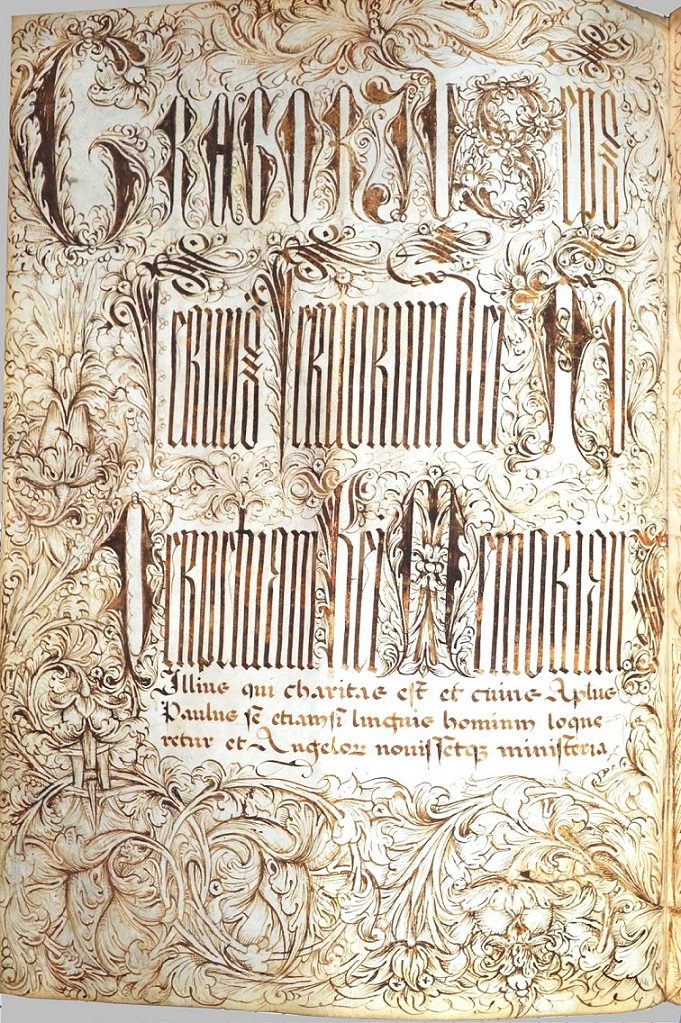 GREGORIUS eps
Seruus seruorum dei Ad
Perpetuam Rei Memoriam
Illius qui charitas est et cuius Aplus
Paulus se etiamsi linguis hominum loque-
retur et Angeloꝝ nouissetqꝫ ministeria